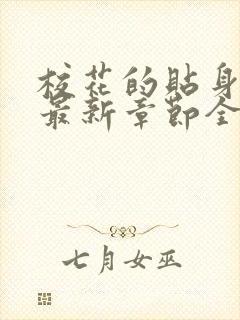 校花的貼身
最新章節全
七月女巫